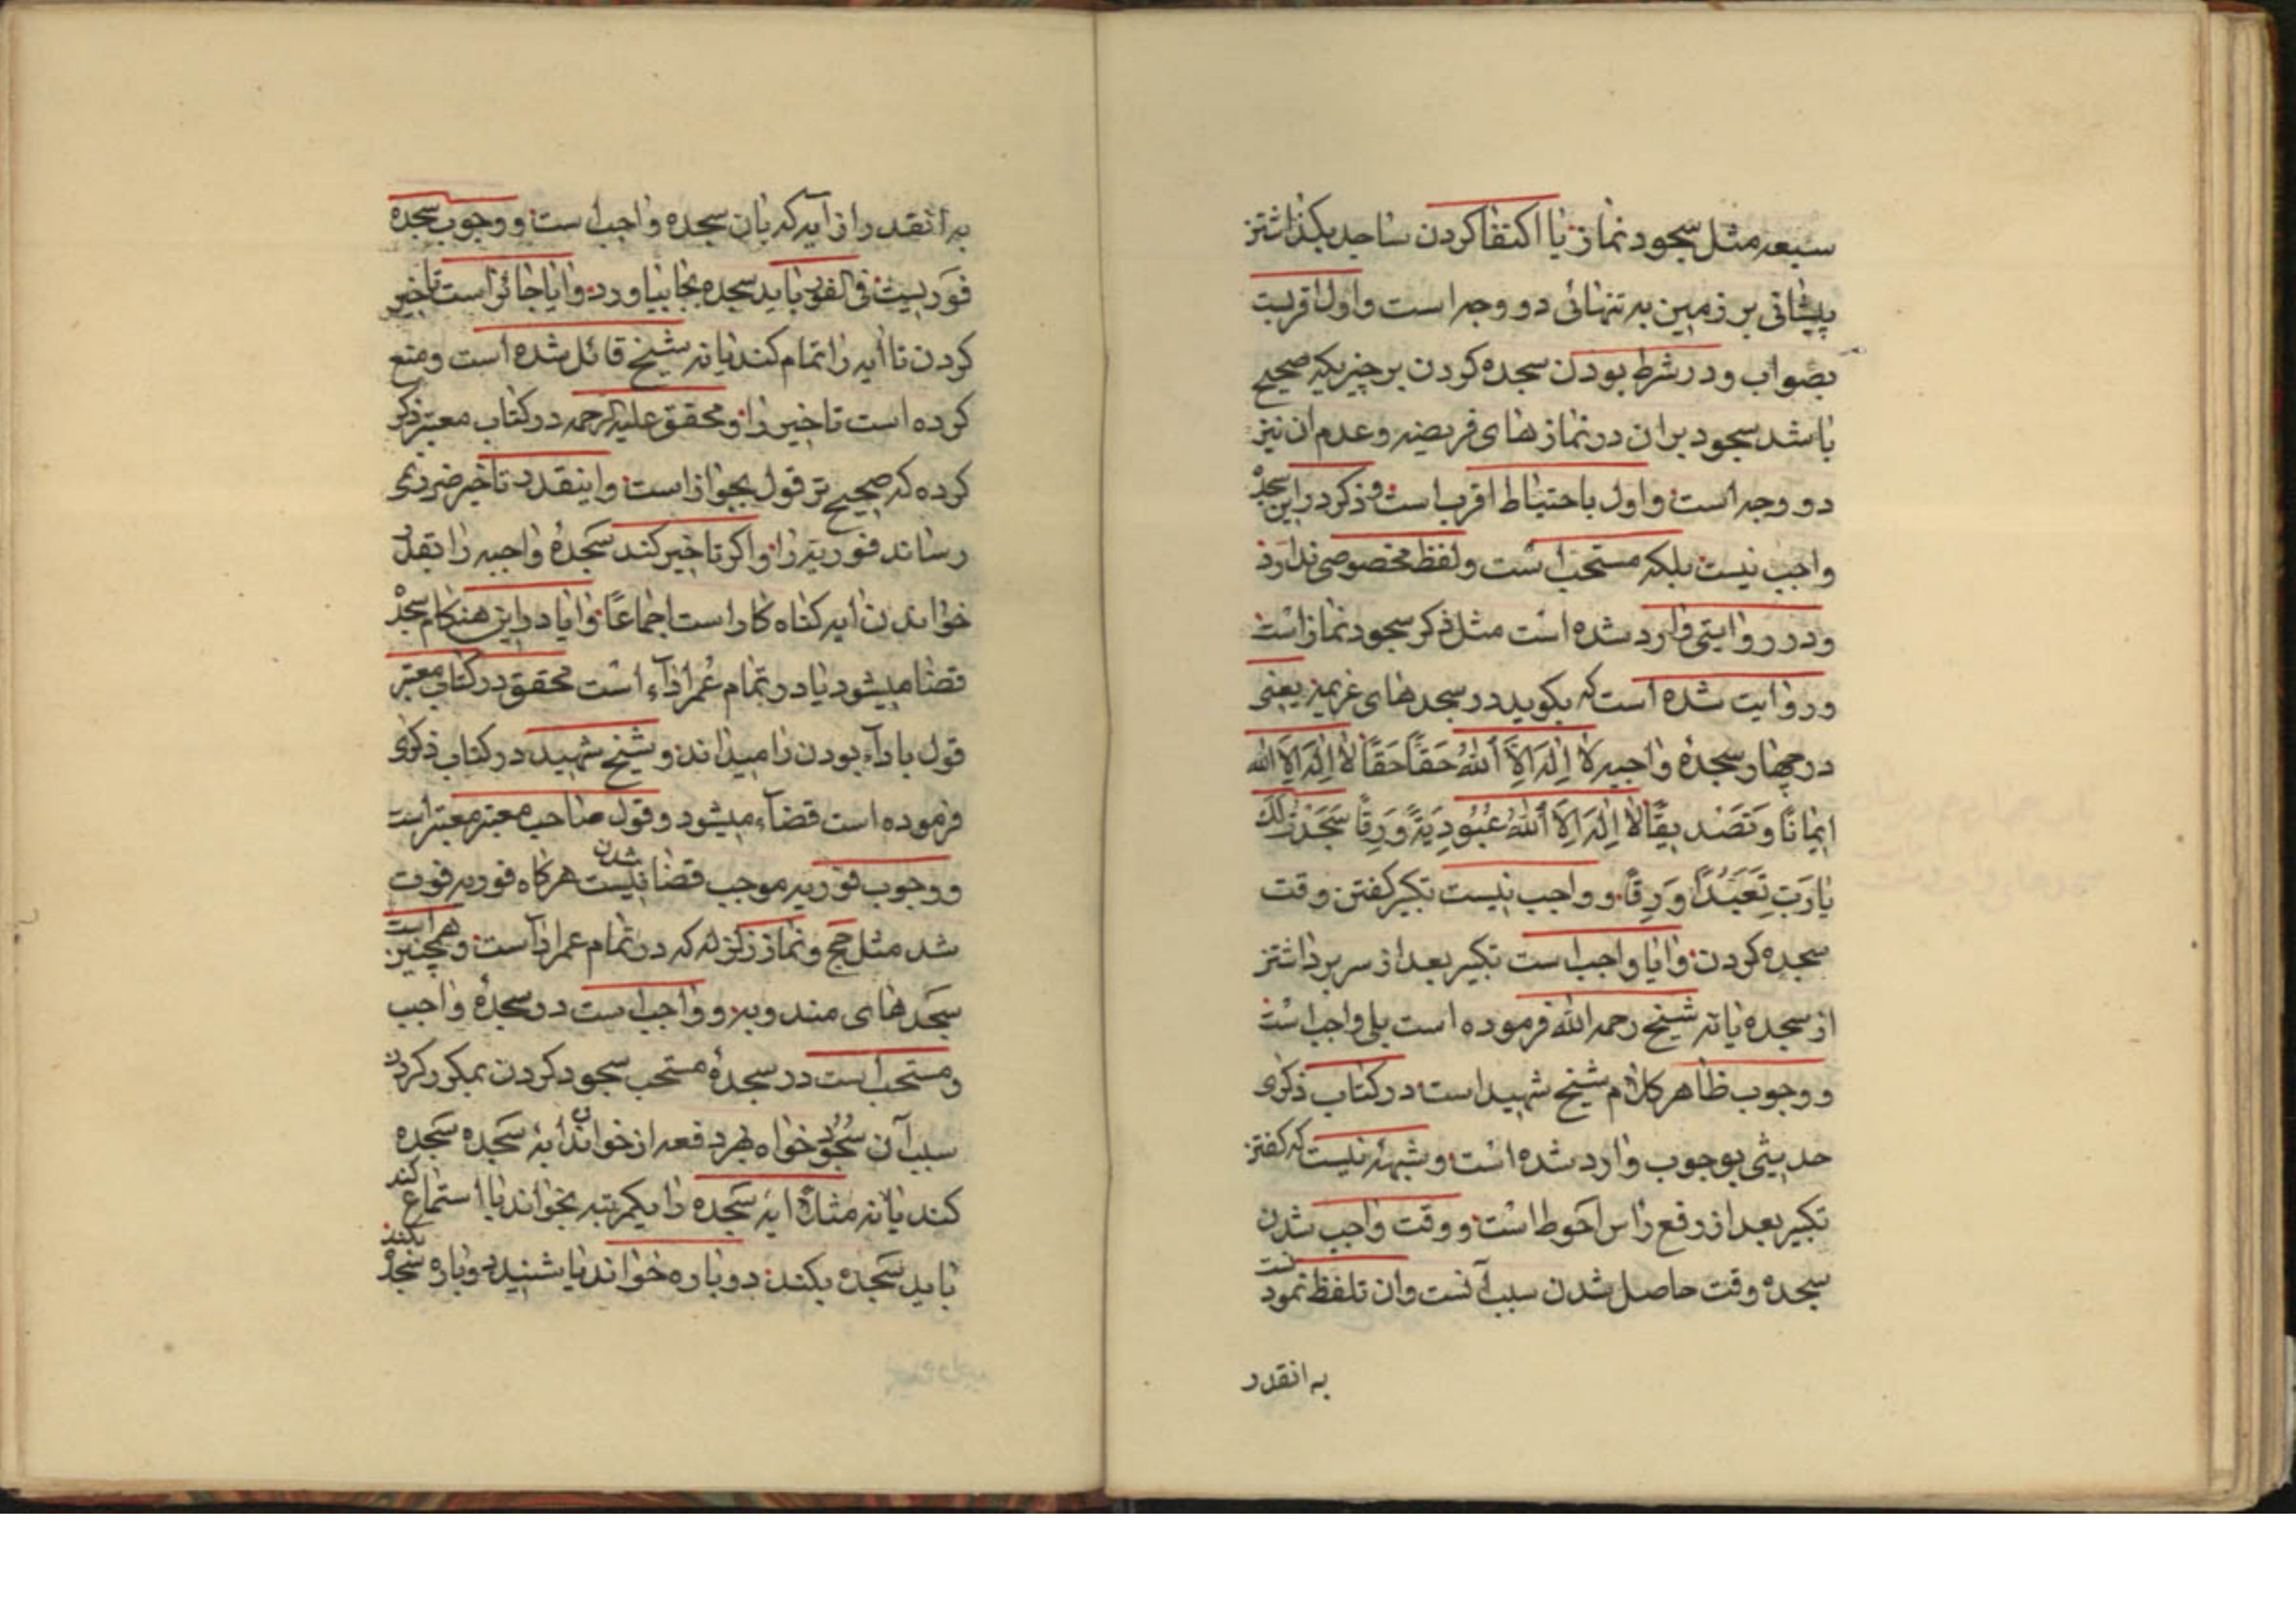 سبعه مثل سجود نماز یا اکتفا کردن ساجد بگذاشتن
پیشانی بر زمین به تنهائی دو وجه است و اول اقربست
بصواب و در شرط بودن سجده کردن بر چیزیکه صحیح
باشد سجود بران در نماز های فریضه و عدم ان نیز
دو وجه است و اول باحتیاط اقرب است و ذکر در این سجدۀ
واجب نیست بلکه مستحب است و لفظ مخصوصی ندارد
و در روایتی وارد شده است مثل ذکر سجود نماز است
و روایت شده است که بگوید در سجد های عزیمه یعنی
در چهار سجدۀ واجبه لا اِلٰهَ اِلاَّ اللّٰهُ حَقّاً حَقّاً لا اِلٰهَ اِلاَّ اللّٰه
ایمانًا وَ تَصْدیقًا لا اِلٰهَ اِلاَّ اللّٰهُ عُبُودِیَةً وَ رِقّا سَجَدْتُ لَكَ
یا رَبِّ تَعَبُّدًا وَ رِقًا و واجب نیست تکبیر گفتن وقت
سجده کردن و ایا واجب است تکبیر بعد از سر برداشتن
از سجده یا نه شیخ رحمه الله فرموده است بلی واجب است
و وجوب ظاهر کلام شیخ شهید است در کتاب ذکری
حدیثی بوجوب وارد شده است و شبهۀ نیست که گفتن
تکبیر بعد از رفع راس احوط است و وقت واجب شدن
سجده وقت حاصل شدن سبب آنست و ان تلفظ نمودنست
به انقدر
به انقدر از آیه که بان سجده واجب است و وجوب سجده
فوریست فی الفور باید سجده بجا بیاورد و ایا جائز است تاخیر
کردن تا ایه را تمام کند یا نه شیخ قائل شده است و منع
کرده است تاخیر را و محقق علیه الرحمه در کتاب معتبر ذکر
کرده که صحیح تر قول بجواز است و اینقدر تاخیر ضرر نمی
رساند فوریة را و اکر تاخیر کند سَجدۀ واجبه را بقدر
خواندن ایه کناه کار است اجماعًا و ایا در این هنکام سجدۀ
قضا میشود یا در تمام عُمر ادآء است محقق در کتاب معتبر
قول باداء بودن را میداند و شیخ شهید در کتاب ذکری
فرموده است قضآء میشود و قول صاحب معتبر معتبر است
و وجوب فوریه موجب قضا شدن نیست هرکاه فوریه فوت
شد مثل حج و نماز زلزله که در تمام عمر ادآ است و همچنین است
سَجَد های مندوبه و واجب است در سجدۀ واجب
و مستحب است در سجدۀ مستحب سجود کردن بمکرر کردن
سبب آن سُجُود خواه بهر دفعه از خواندن ایه سَجده سَجده
کند یا نه مثلاً ایه سَجده را یکمرتبه بخواند یا استماع کند
باید سَجده بکند دوباره خواند یا شنید دوباره سَجدۀ بکند